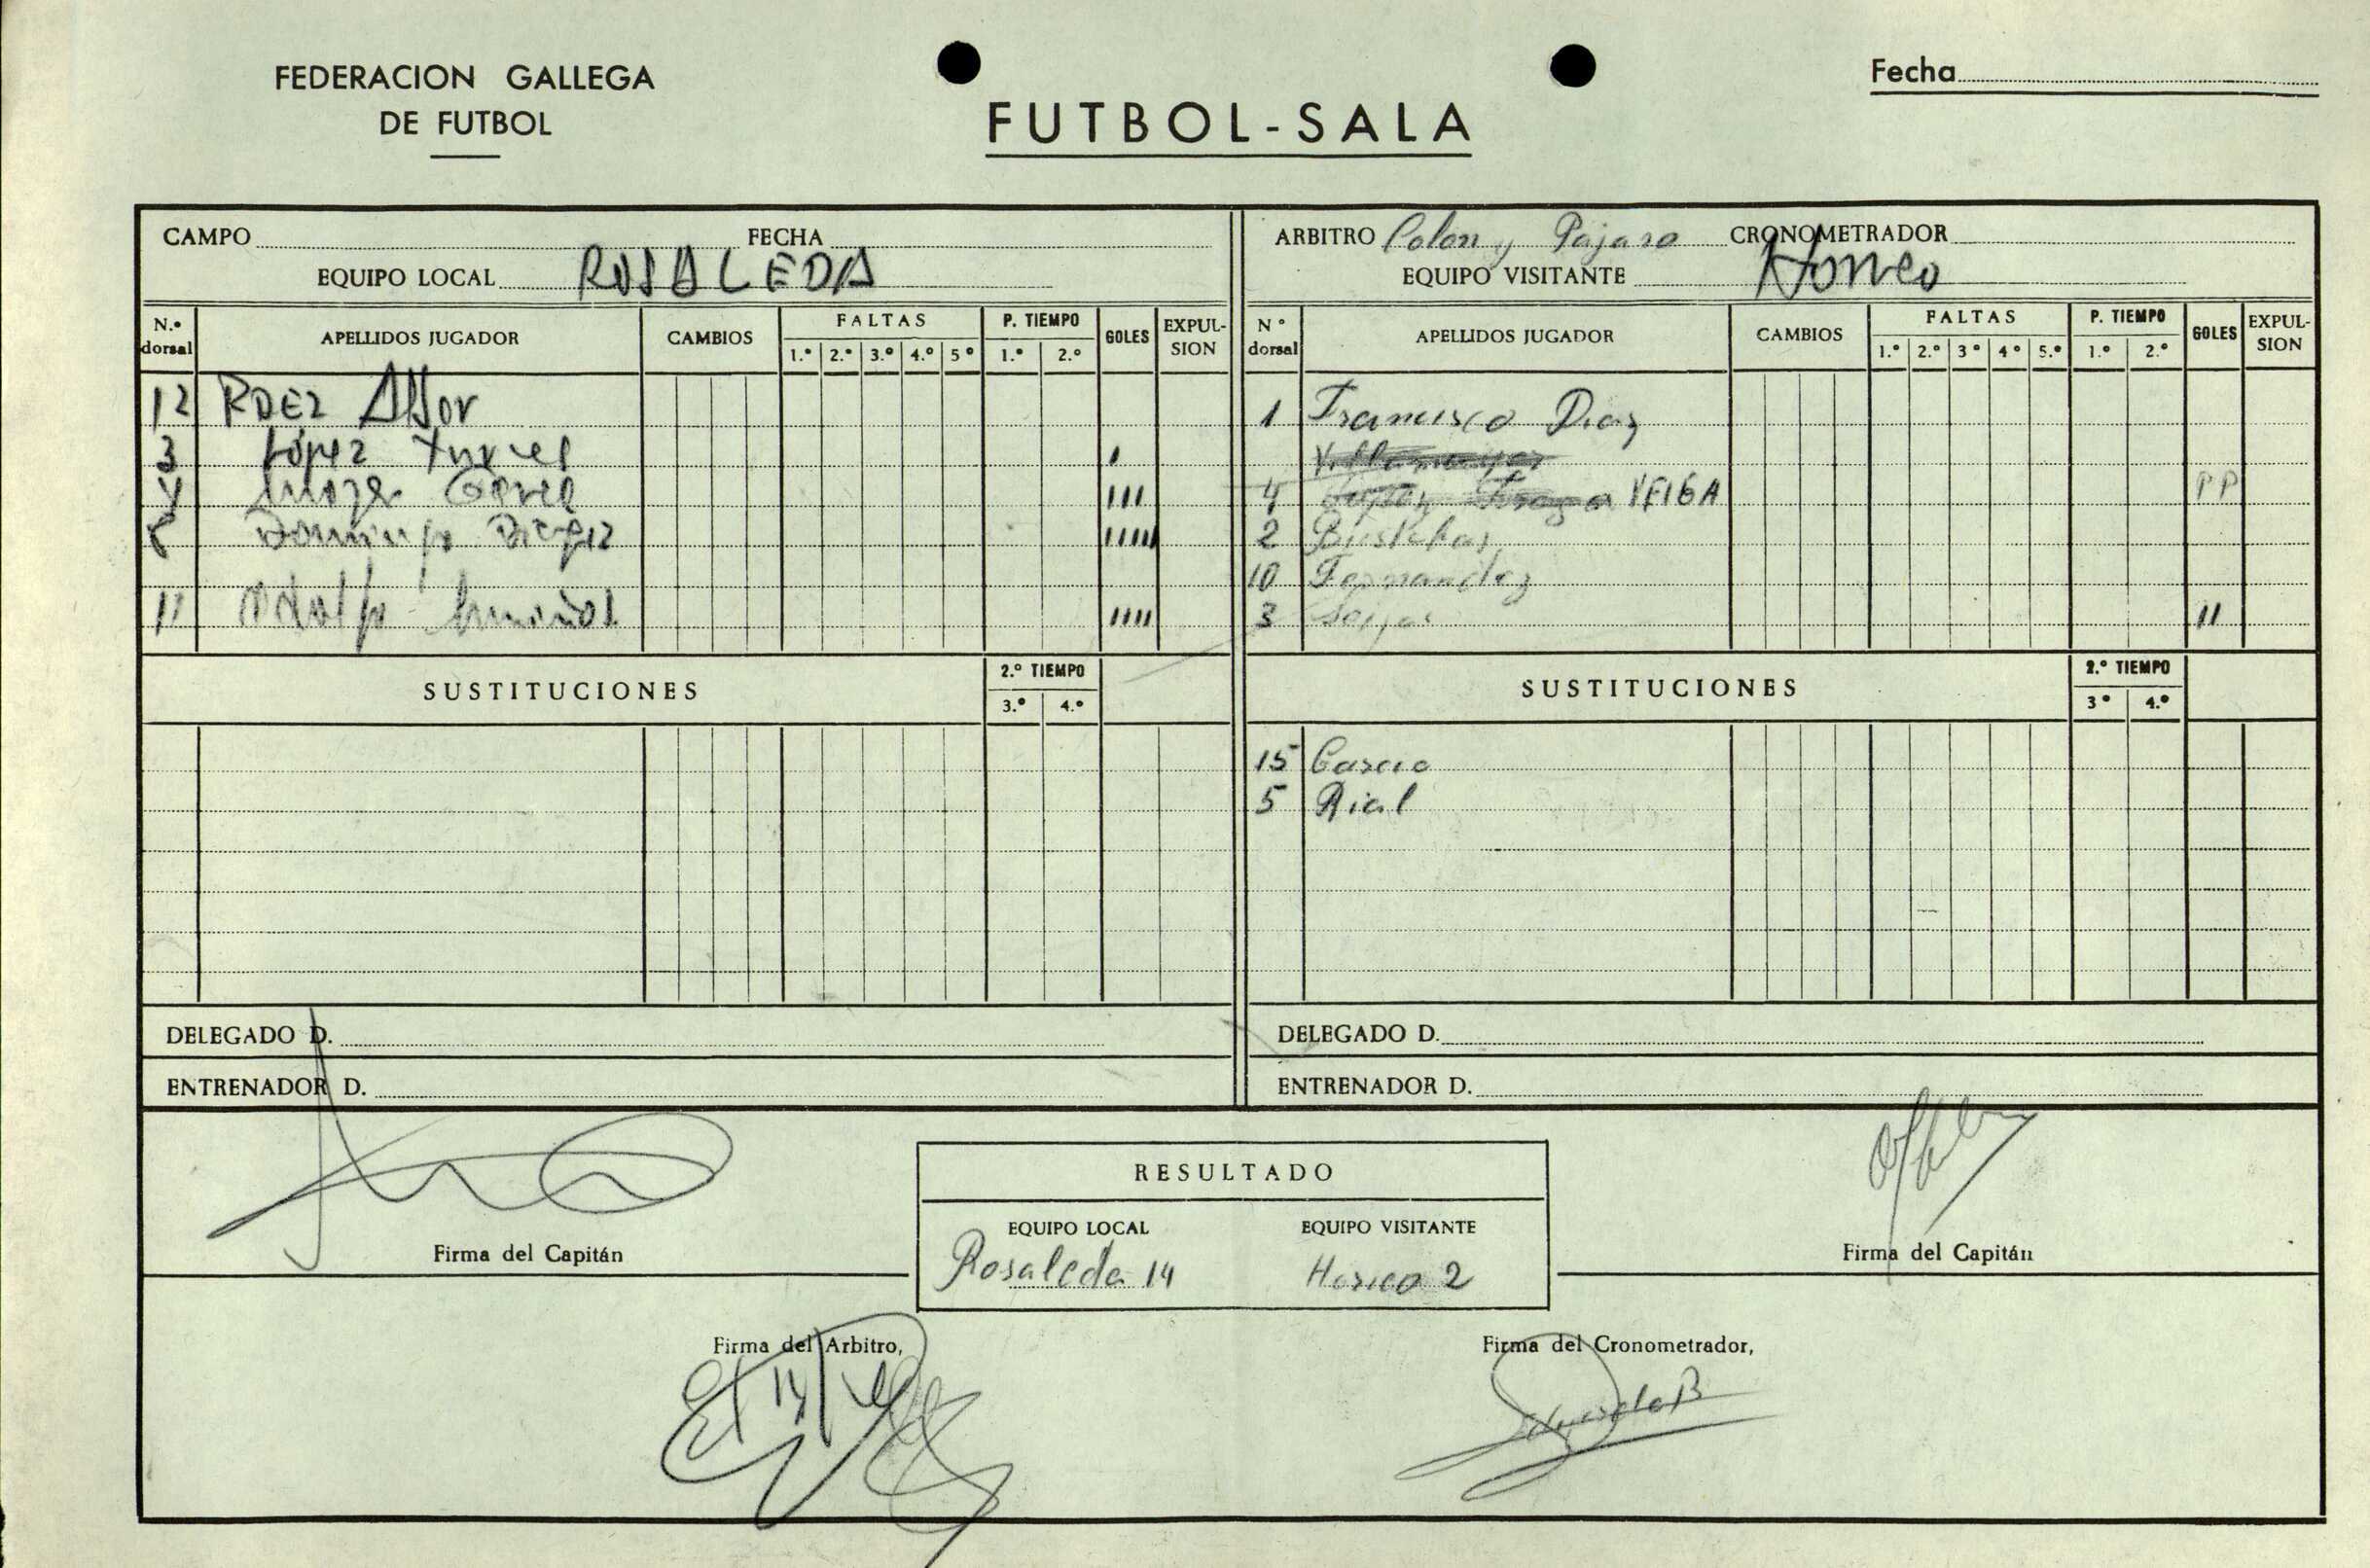 FEDERACION GALLEGA
DE FUTBOL
FUTBOL-SALA
Fecha
CAMPO FECHA
EQUIPO LOCAL ROSALEDA
ARBITRO Colon y Pajaro CRONOMETRADOR
EQUIPO VISITANTE
N.º dorsal APELLIDOS JUGADOR CAMBIOS FALTAS 1.º 2.º 3.º 4.º 5º P. TIEMPO 1.º 2.º GOLES EXPUL-SION
12 RDEZ
3 López
Domingo
11 Adolfo
N º dorsal APELLIDOS JUGADOR CAMBIOS FALTAS 1.º 2.º 3º 4º 5.º P. TIEMPO 1.º 2.º GOLES EXPUL-SION
1 Francisco Diaz
4 VEIGA PP
2
10 Fernandez
3 Seijas II
SUSTITUCIONES 2.º TIEMPO 3.º 4.º
SUSTITUCIONES 2.º TIEMPO 3º 4.º
15 Garcia
5 Rial
DELEGADO D.
ENTRENADOR D.
DELEGADO D.
ENTRENADOR D.
Firma del Capitán
RESULTADO
EQUIPO LOCAL EQUIPO VISITANTE
Rosaleda 14 2
Firma del Capitán
Firma del Arbitro,
Firma del Cronometrador,